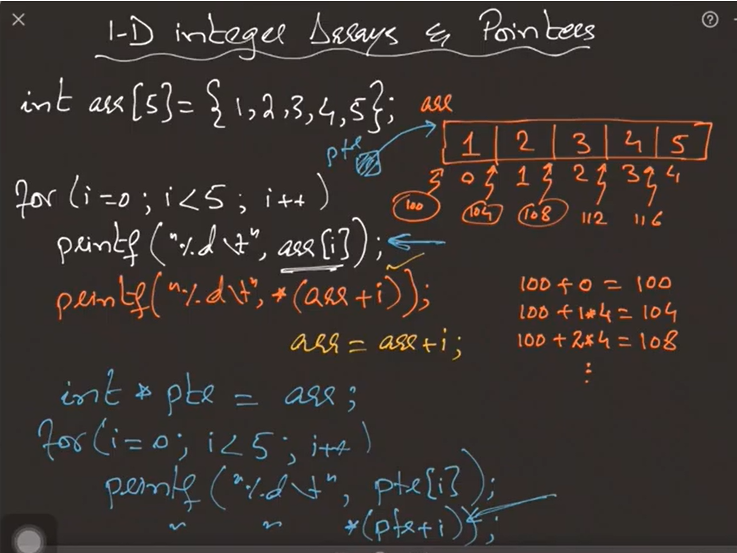 1-D integer Arrays & Pointers
int arr[5] = {1,2,3,4,5};
arr
ptr
1 2 3 4 5
0 1 2 3 4
100 104 108 112 116
for (i=0; i<5; i++)
printf ("%d\t", arr[i]);
printf("%d\t", *(arr+i));
arr = arr+i;
100 + 0 = 100
100 + 1*4 = 104
100 + 2*4 = 108
⋮
int * ptr = arr;
for(i=0; i<5; i++)
printf ("%d\t", ptr[i]);
" " *(ptr+i));